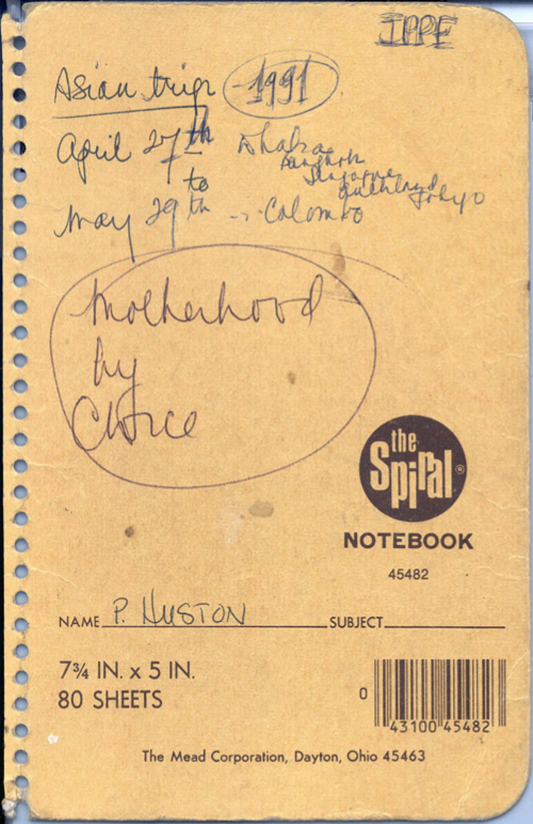 IPPF
Asian trip -1991
April 27th Dhaka
Bangkok
to
Tokyo
May 29th Colombo
Motherhood
by
Choice
the
Spiral®
NOTEBOOK
45482
NAME P. HUSTON SUBJECT
7¾ IN. x 5 IN.
80 SHEETS
0 43100 45482
The Mead Corporation, Dayton, Ohio 45463